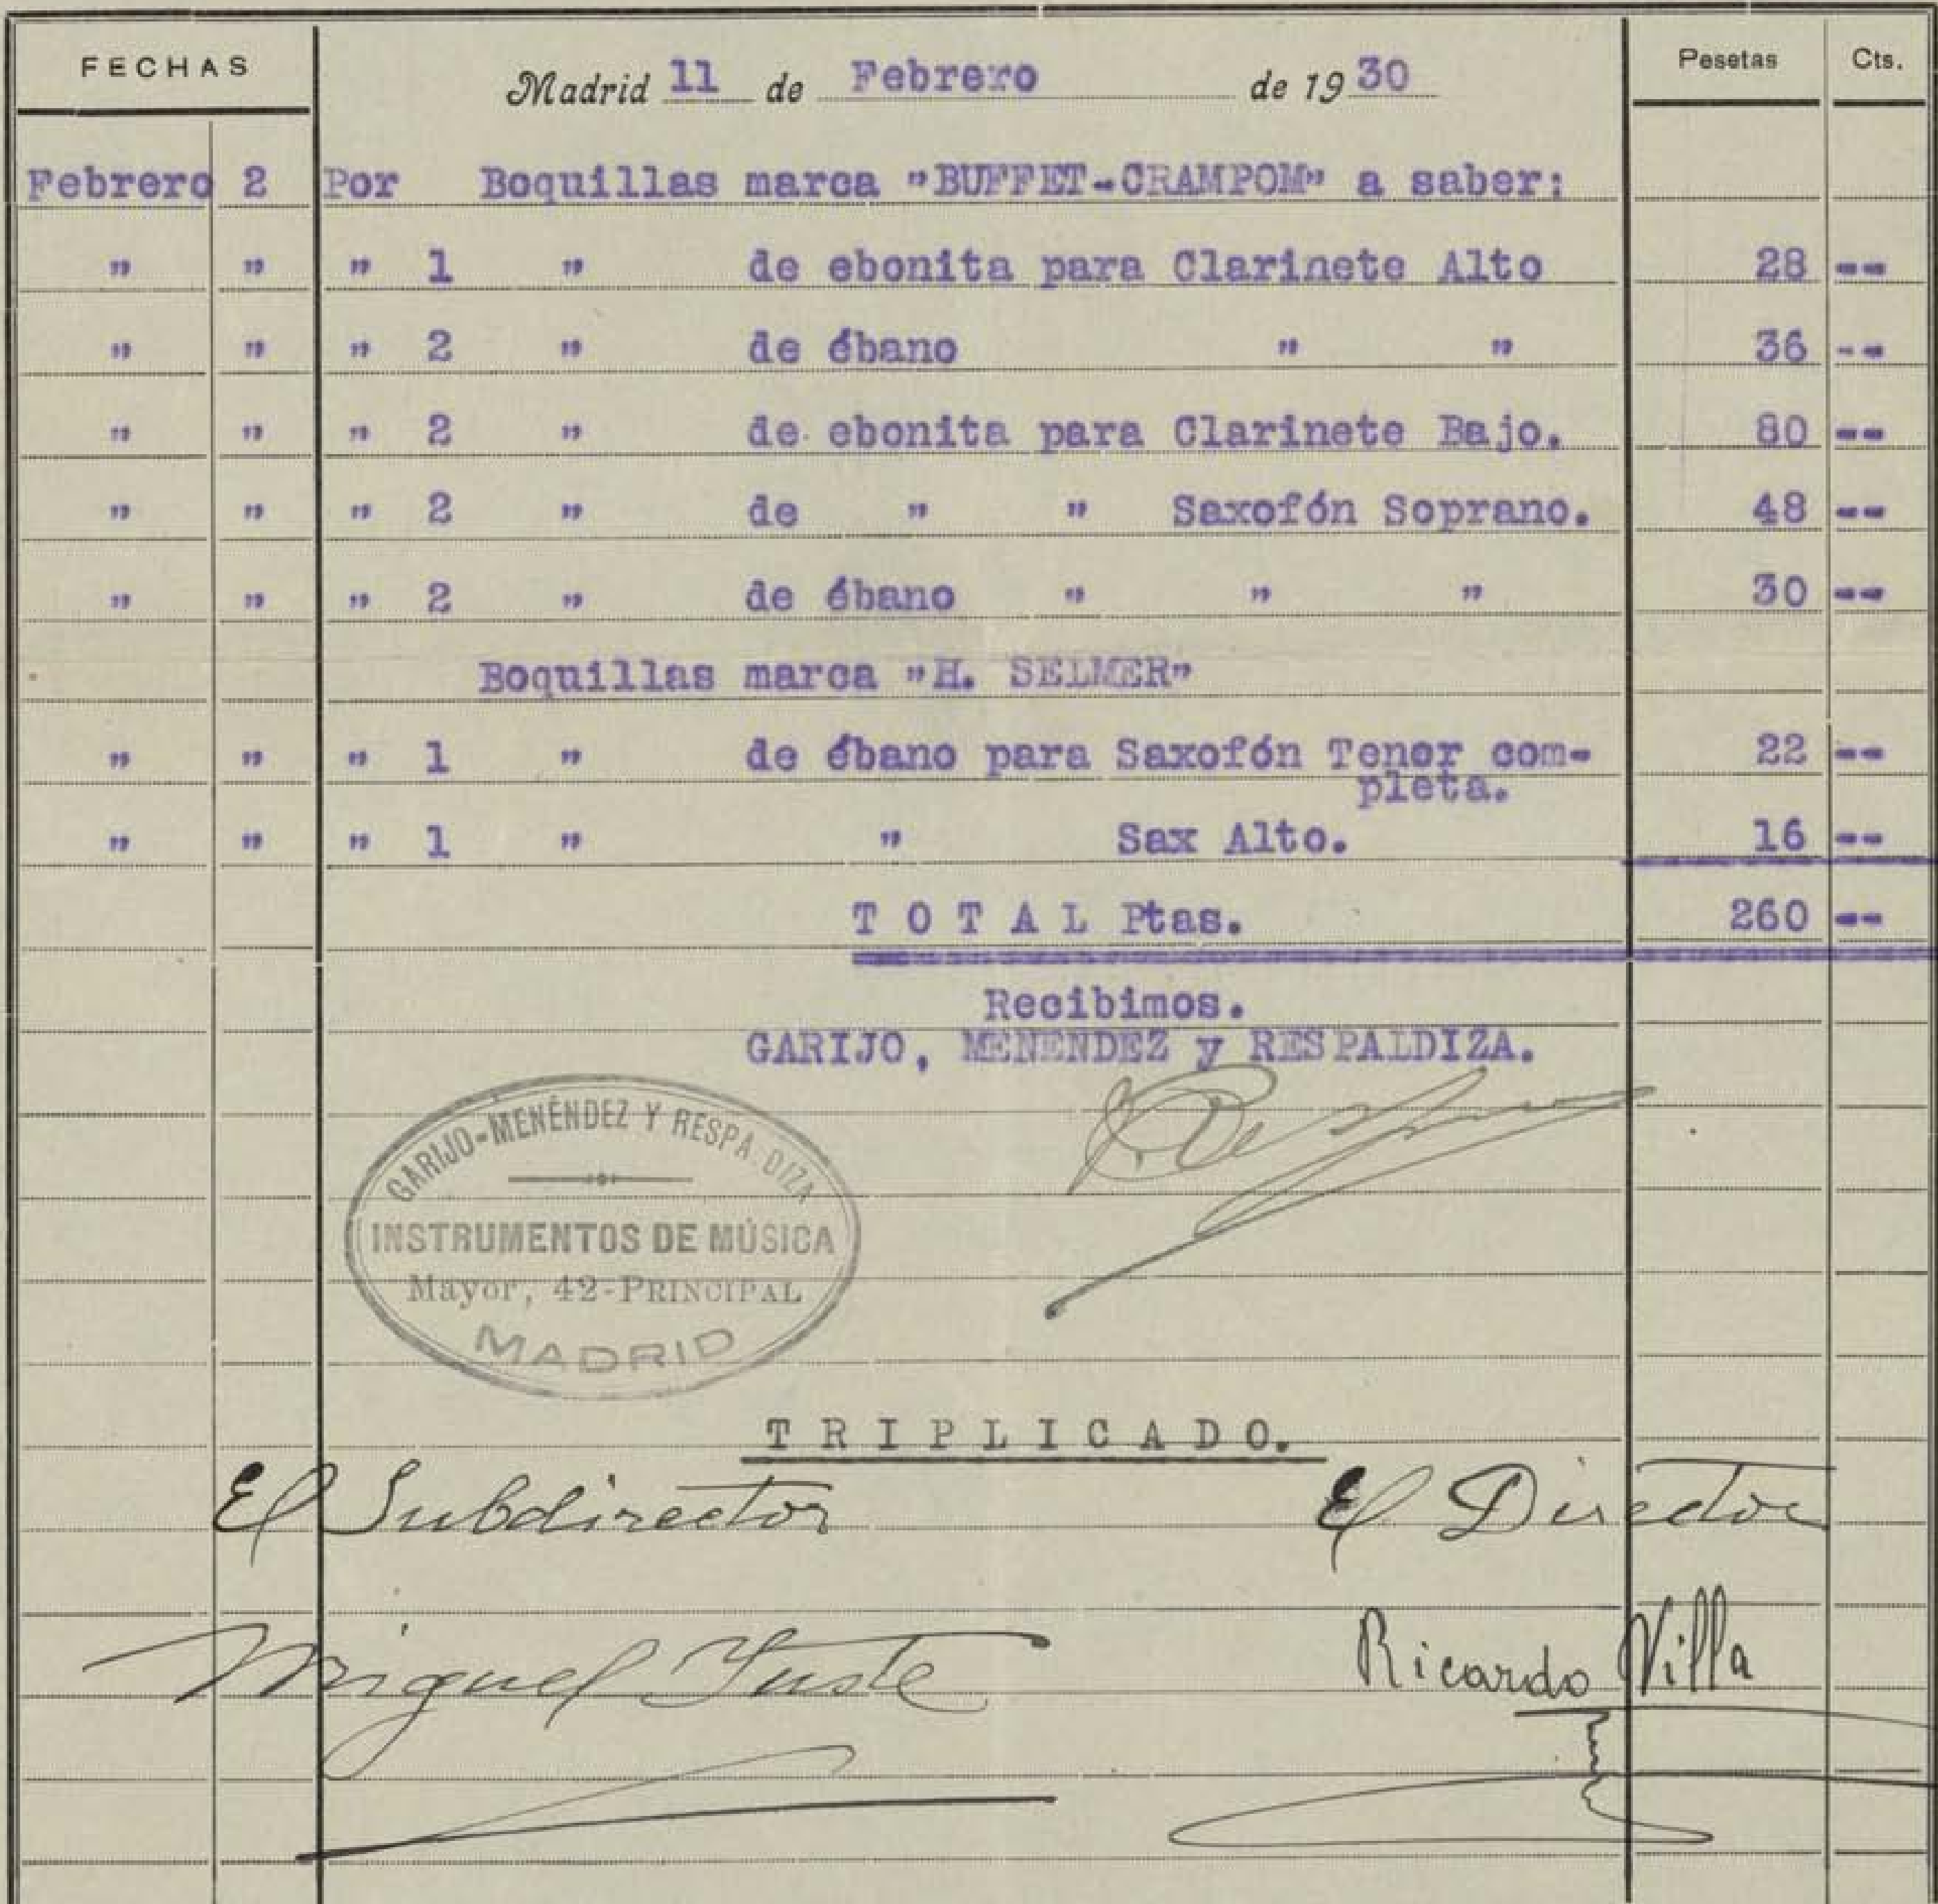 FECHAS Madrid 11 de Febrero de 1930 Pesetas Cts.
Febrero 2 Por Boquillas marca "BUFFET-CRAMPOM" a saber:
" " " 1 " de ebonita para Clarinete Alto 28 --
" " " 2 " de ébano " " 36 --
" " " 2 " de ebonita para Clarinete Bajo. 80 --
" " " 2 " de " " Saxofón Soprano. 48 --
" " " 2 " de ébano " " " 30 --
Boquillas marca "H. SELMER"
" " " 1 " de ébano para Saxofón Tenor com-
pleta. 22 --
" " " 1 " " Sax Alto. 16 --
TOTAL Ptas. 260 --
Recibimos.
GARIJO, MENENDEZ y RESPALDIZA.
GARIJO-MENÉNDEZ Y RESPA DIZA
INSTRUMENTOS DE MÚSICA
Mayor, 42-PRINCIPAL
MADRID
TRIPLICADO.
El Subdirector El Director
Miguel Yuste Ricardo Villa